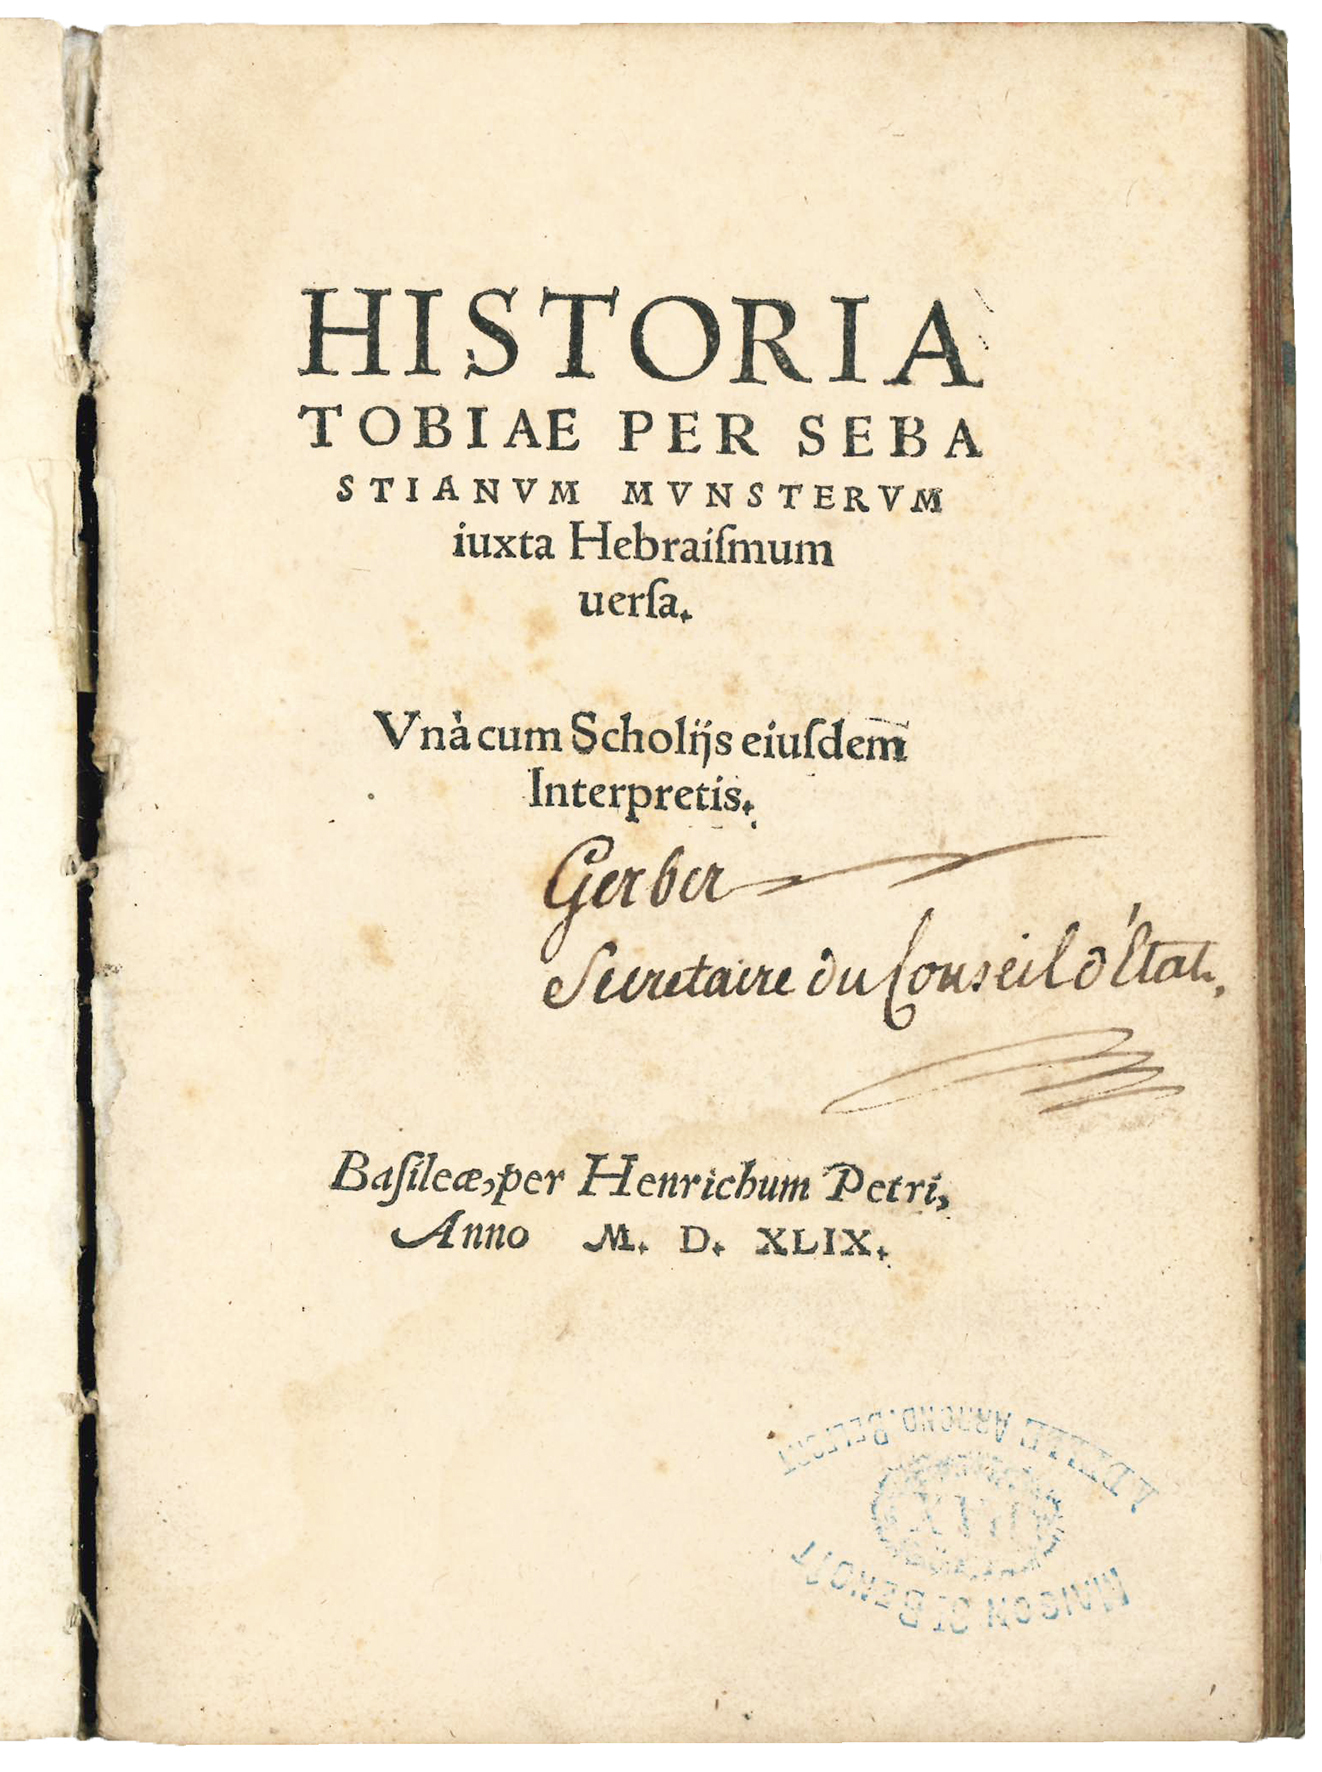 HISTORIA
TOBIAE PER SEBA
STIANVM MVNSTERVM
iuxta Hebraiſmum
uerſa.
Vnà cum Scholijs eiuſdem
Interpretis.
Gerber
Secretaire du Conseil d'État.
Baſileæ, per Henrichum Petri,
Anno M. D. XLIX.
MAISON St BENOIT
ARROND. BELFORT